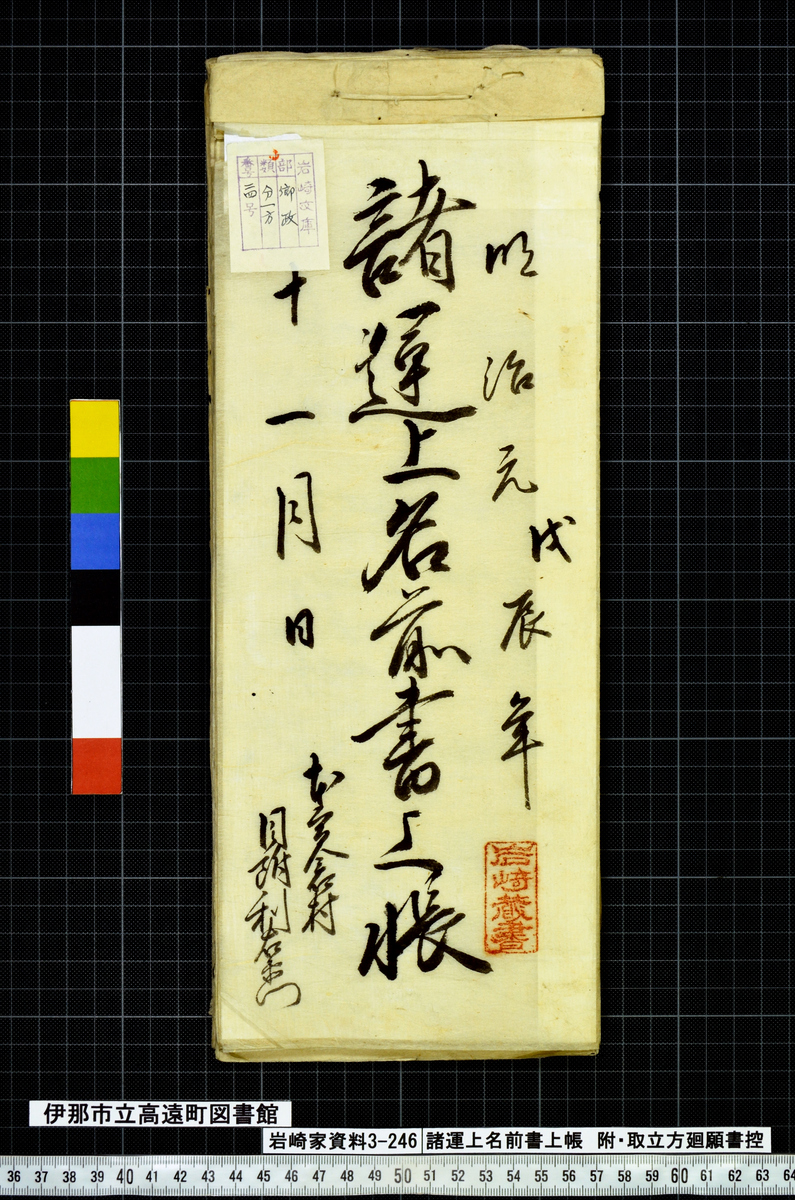 明治元戊辰年
岩崎蔵書
諸運上名前書上帳
十一月日
村
目附利右衛門
岩崎文庫
部 政
類 分一方
号
伊那市立高遠町図書館
岩崎家資料3-246 諸運上名前書上帳 附・取立方廻願書控
36 37 38 39 40 41 42 43 44 45 46 47 48 49 50 51 52 53 54 55 56 57 58 59 60 61 62 63 64